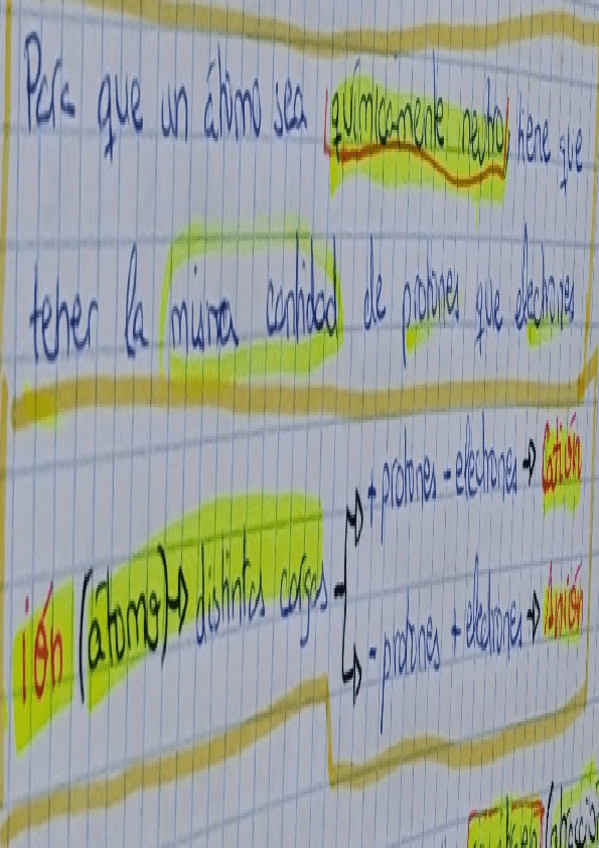 Para que un átomo sea químicamente neutro, tiene que
tener la misma cantidad de protones que electrones
+ protones - electrones → Catión
ión (átomo) → distintas cargas
- protones + electrones → Anión